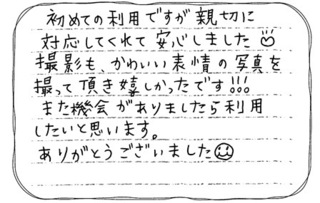 初めての利用ですが親切に
対応してくれて安心しました
撮影も、かわいい表情の写真を
撮って頂き嬉しかったです!!!
また機会がありましたら利用
したいと思います。
ありがとうございました